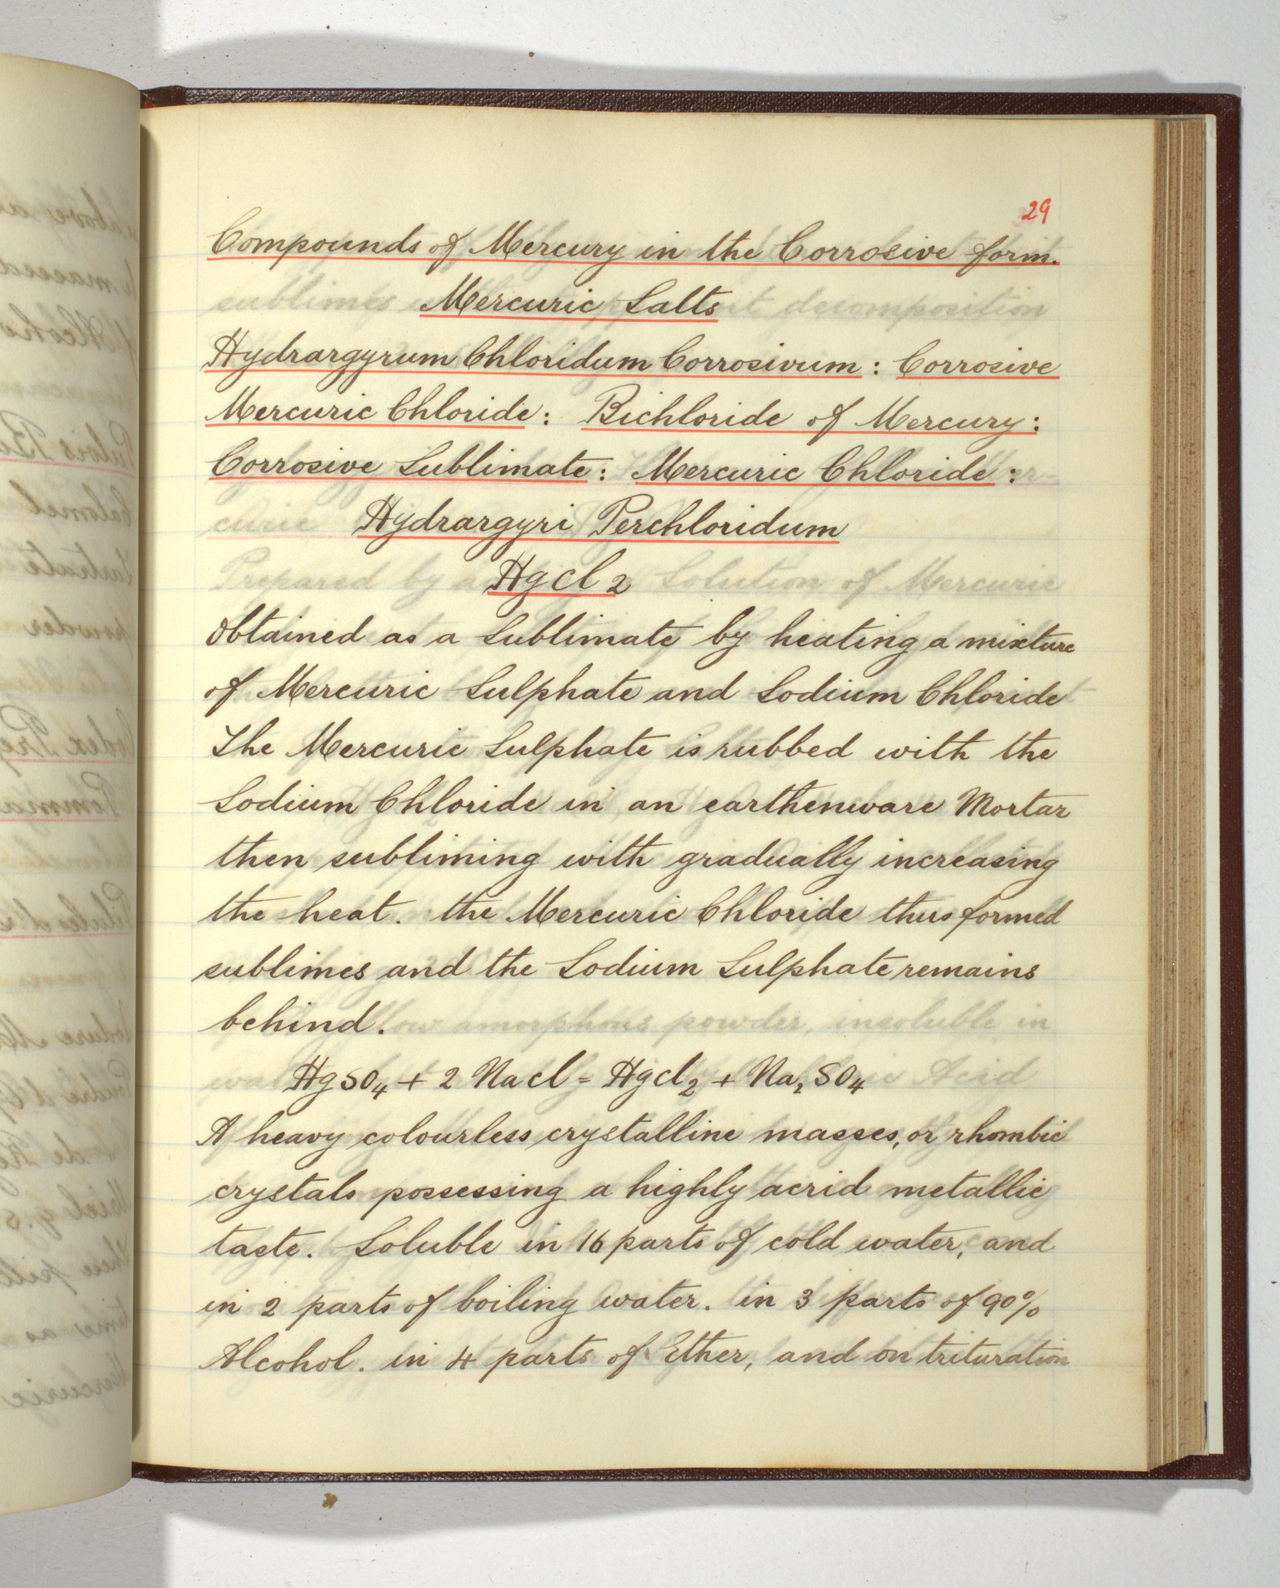 29
Compounds of Mercury in the Corrosive form.
Mercuric Salts
Hydrargyrum Chloridum Corrosivum : Corrosive
Mercuric Chloride : Bichloride of Mercury :
Corrosive Sublimate : Mercuric Chloride :
Hydrargyri Perchloridum
Hgcl 2
Obtained as a Sublimate by heating a mixture
of Mercuric Sulphate and Sodium Chloride
The Mercuric Sulphate is rubbed with the
Sodium Chloride in an earthenware Mortar
then subliming with gradually increasing
the heat. the Mercuric Chloride thus formed
sublimes and the Sodium Sulphate remains
behind.
HgSO₄ + 2 Nacl = Hgcl₂ + Na₂ SO₄
A heavy colourless crystalline masses, or rhombic
crystals possessing a highly acrid metallic
taste. Soluble in 16 parts of cold water, and
in 2 parts of boiling water. in 3 parts of 90%
Alcohol. in 4 parts of Ether, and on trituration